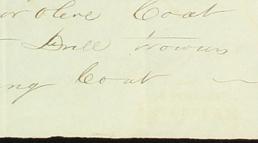 or Olive Coat
Drill Trowers
ng Coat